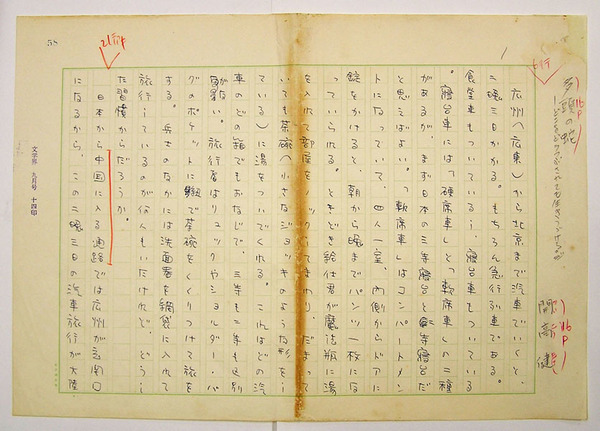 多頭の蛇
16P
開高健
16P
1
広州(広東)から北京まで汽車でいくと、
二晩三日かかる。もちろん急行列車である。
食堂車もついているし、寝台車もついている
。寝台車には「硬席車」と「軟席車」の二種
があるが、まず日本の三等寝台と二等寝台だ
と思えばよい。「軟席車」はコンパートメン
トになっていて、四人一室、内側からドアに
錠をかけると、朝から晩までパンツ一枚にな
っていられる。ときどき給仕君が魔法瓶に湯
を入れて部屋をノックしてまわり、だまって
いても茶碗(小さなジョッキのような形をし
ている)に湯をついでくれる。これはどの汽
車のどの箱でもおなじで、三等も二等も区別
がない。旅行者はリュックやショルダー・バ
グのポケットに紐で茶碗をくくりつけて旅を
する。兵士のなかには洗面器を網袋に入れて
旅行しているのが何人もいたけれど、どうし
た習慣からだろうか。
日本から中国に入る通路では広州が玄関口
になるから、この二晩三日の汽車旅行が大陸
文学界 九月号 十四印
58